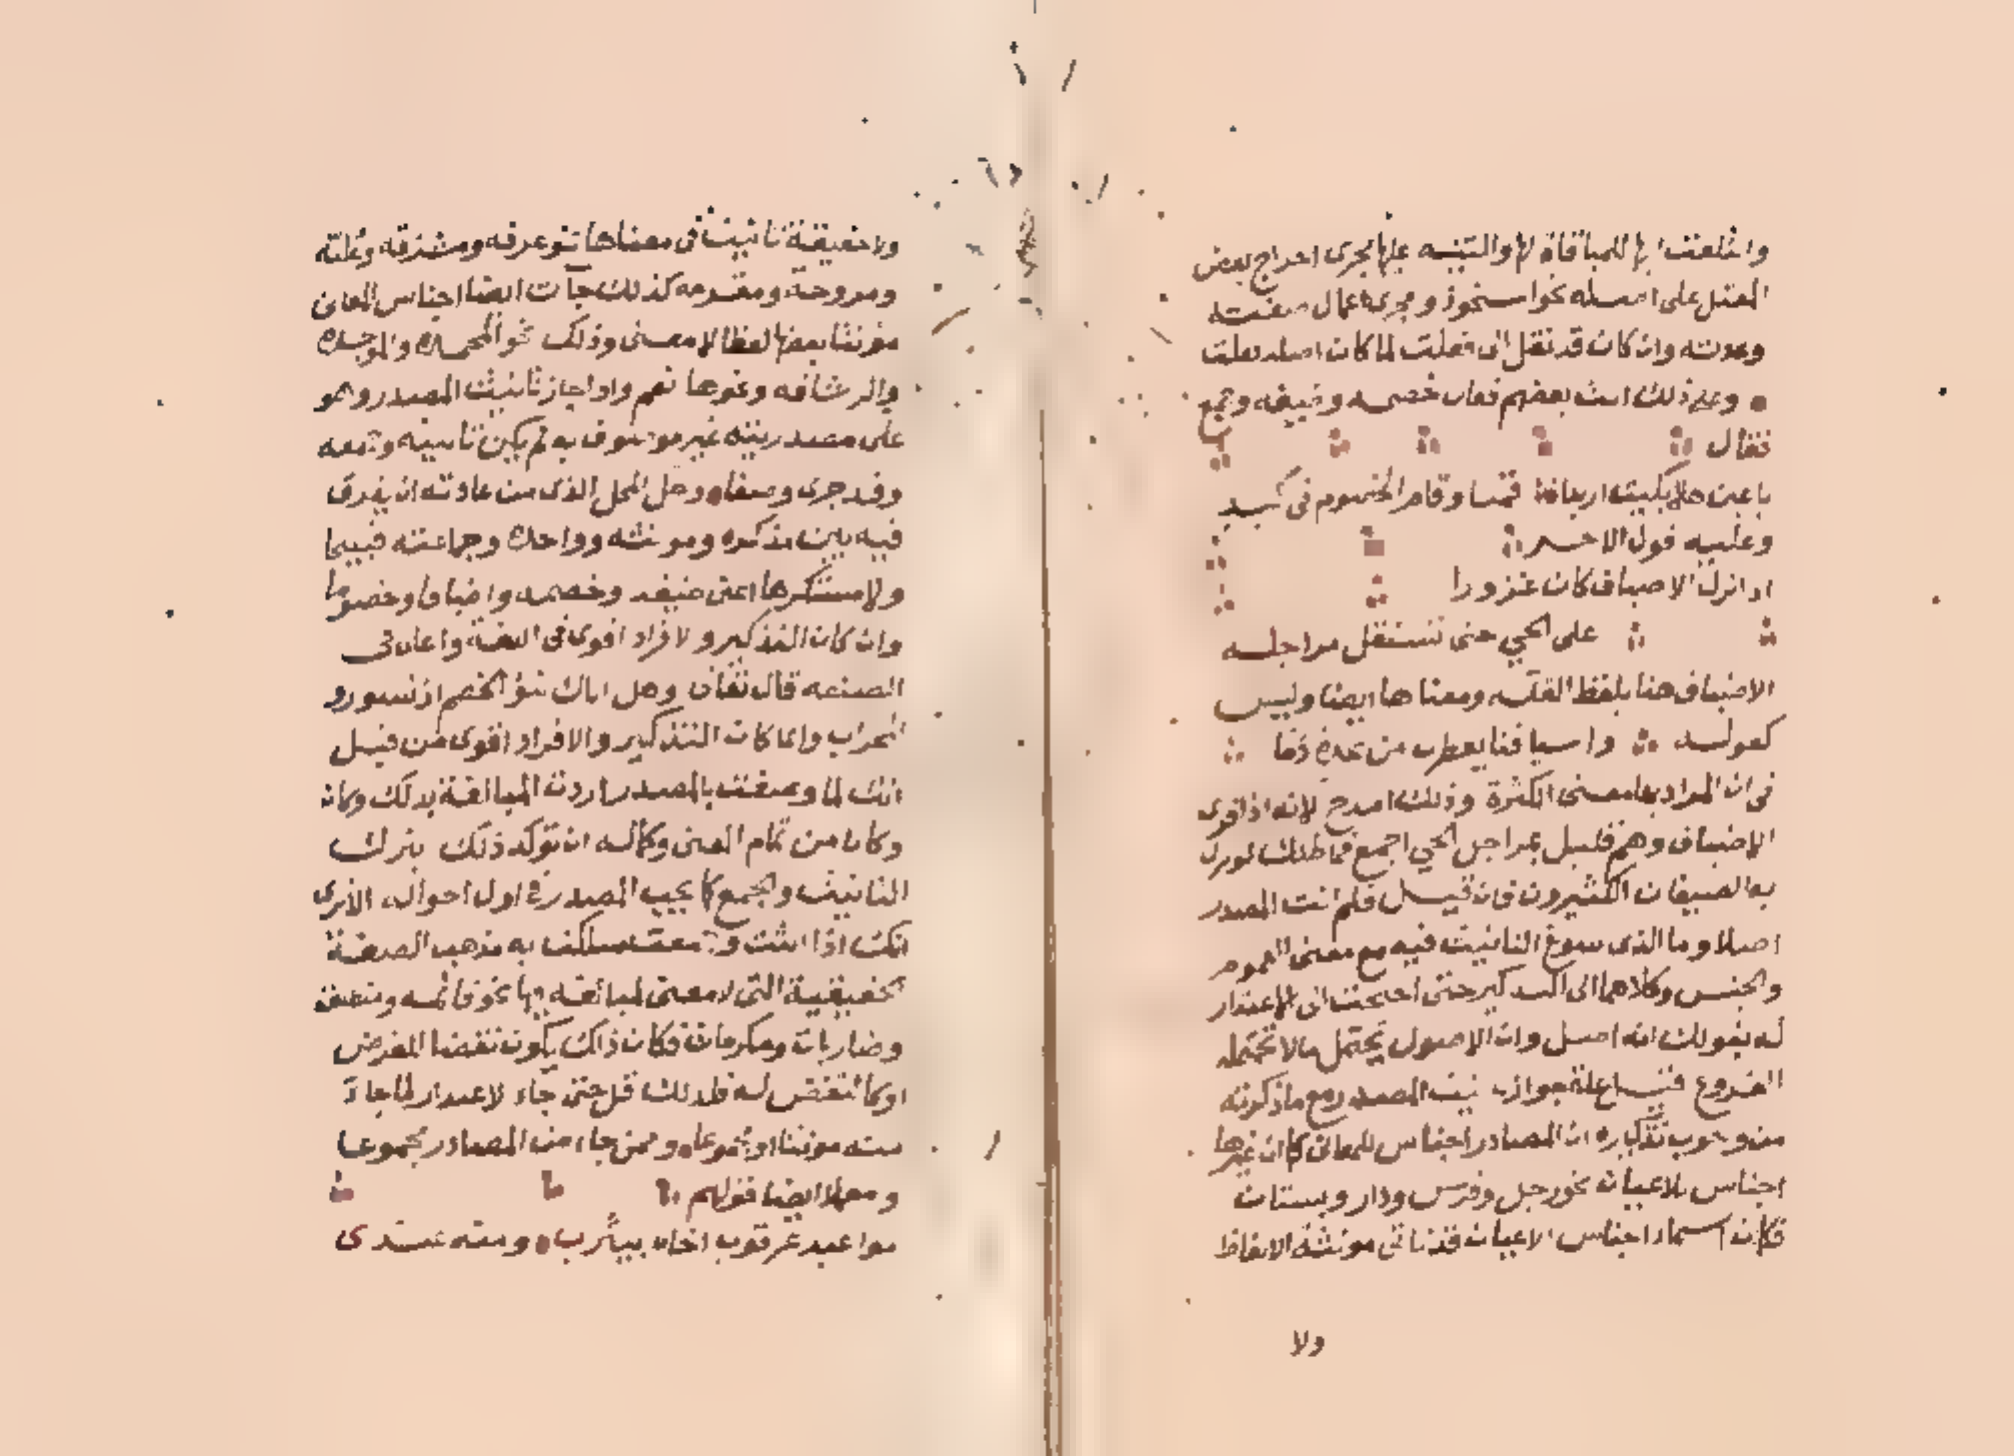 على اصله نحو استحوذ ومجرى اعمال صغته
وعدته وان كان قد نقل الى فعلت لما كان اصله فعلت
وعلى ذلك انث بعضهم فقال خصمه وضيفه وجمع
فقال
يا عين هلا بكيت اربد اذ قمنا وقام الخصوم في كبد
وعليه قول الاخر
اذا نزل الاضياف كان عذورا
على الحي حتى تستقل مراجله
الاضياف هنا بلفظ القلة ومعناها ايضا وليس
كقوله واسيافنا يقطرن من نجدة دما
في ان المراد بها معنى الكثرة وذلك امدح لانه اذا قرى
الاضياف وهم قليل بمراجل الحي اجمع فما ظنك لو نزل
به الضيفان الكثيرون فان قيل فلم انث المصدر
اصلا وما الذي سوغ التانيث فيه مع معنى العموم
والجنس وكلاهما الى التذكير حتى احتجت الى الاعتذار
له بقولك انه اصل وان الاصول تحتمل ما لا تحتمله
الفروع قيل علة جواز تانيث المصدر مع ما ذكرته
من وجوب تذكيره ان المصادر اجناس للمعاني كما ان غيرها
اجناس للاعيان نحو رجل وفرس ودار وبستان
فكما ان اسماء اجناس الاعيان قد تاتي مونثة الالفاظ
ولا
ولا حقيقة تانيث في معناها نحو غرفة ومشرقة وعلية
ومروحة ومقرمة كذلك جاءت ايضا اجناس المعاني
مونثا بعضها لفظا لا معنى وذلك نحو المحمدة والموجدة
والرشاقة ونحوها نعم واذا جاز تانيث المصدر وهو
على مصدريته غير موصوف به لم يكن تانيثه وجمعه
وقد جرى وصفا وحل المحل الذي من عادته ان يفرق
فيه بين مذكره ومونثه وواحده وجماعته قبيحا
ولا مستنكرا اعني ضيفة وخصمة واضيافا وخصوما
وان كان التذكير والافراد اقوى في اللغة واعلى في
الصنعة قال تعالى وهل اتاك نبؤ الخصم اذ تسوروا
المحراب وانما كان التذكير والافراد اقوى من قبل
انك لما وصفت بالمصدر اردت المبالغة بذلك وكان
وكان من تمام المعنى وكماله ان توكد ذلك بترك
التانيث والجمع كما يجب للمصدر في اول احواله الا ترى
انك اذا انثت وجمعت سلكت به مذهب الصفة
الحقيقية التي لا معنى لمبالغة فيها نحو قائمة ومنطلقة
وضاربات ومكرمات فكان ذلك يكون نقضا للغرض
او كالنقض له فلذلك قل حتى جاء الاعتذار لما جاء
منه مونثا او مجموعا ومن جاء من المصادر مجموعا
ومعملا ايضا قولهم
مواعيد عرقوب اخاه بيثرب ومنه عندي